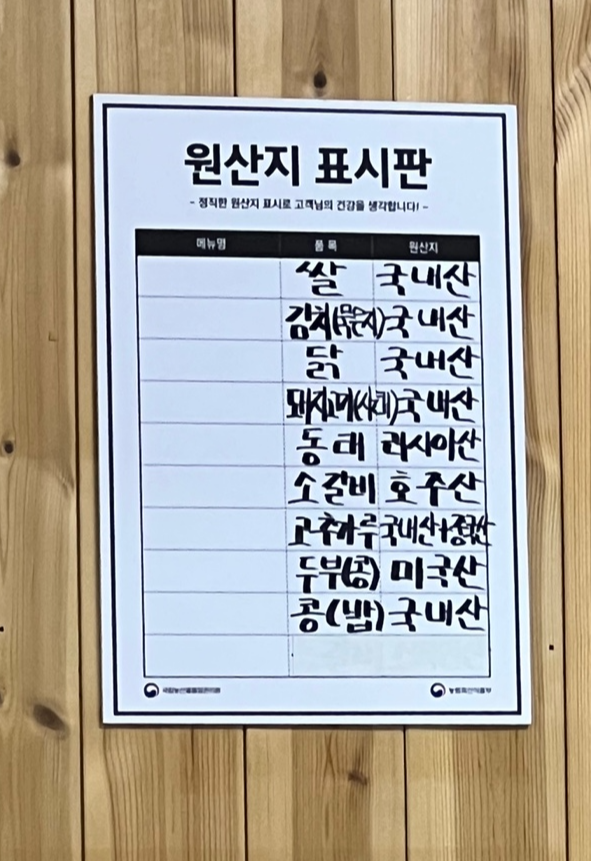 원산지 표시판
- 정직한 원산지 표시로 고객님의 건강을 생각합니다! -
메뉴명 품 목 원산지
쌀 국내산
김치(묵은지) 국내산
닭 국내산
돼지고기(사태) 국내산
동태 러시아산
소갈비 호주산
고추가루 국내산+중국산
두부(콩) 미국산
콩(밥) 국내산
국립농산물품질관리원 농림축산식품부